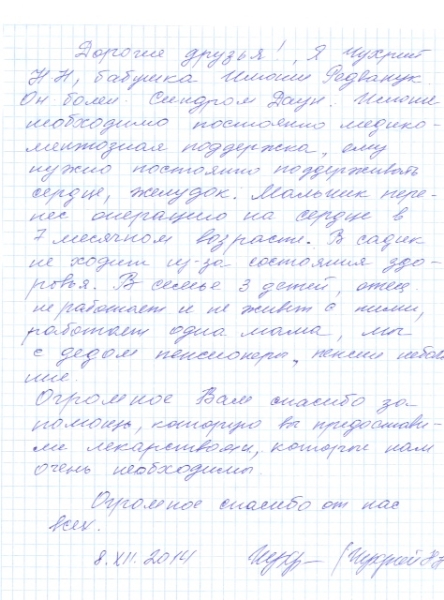 Дорогие друзья! Я Чухрий
Н Н, бабушка Имоши Редванчук.
Он болен Синдром Даун. Имоше
необходимо постоянно медико-
ментозная поддержка, ему
нужно постоянно поддерживать
сердце, желудок. Мальчик пере-
нес операцию на сердце в
7 месячном возрасте. В садик
не ходит из-за состояния здо-
ровья. В семье 3 детей, отец
не работает и не живёт с ними,
работает одна мама, мы
с дедом пенсионеры, пенсии неболь
шие.
Огромное Вам спасибо за
помощь, которую вы предостави-
ли лекарствами, которые нам
очень необходимы.
Огромное спасибо от нас
всех.
8.XII.2014